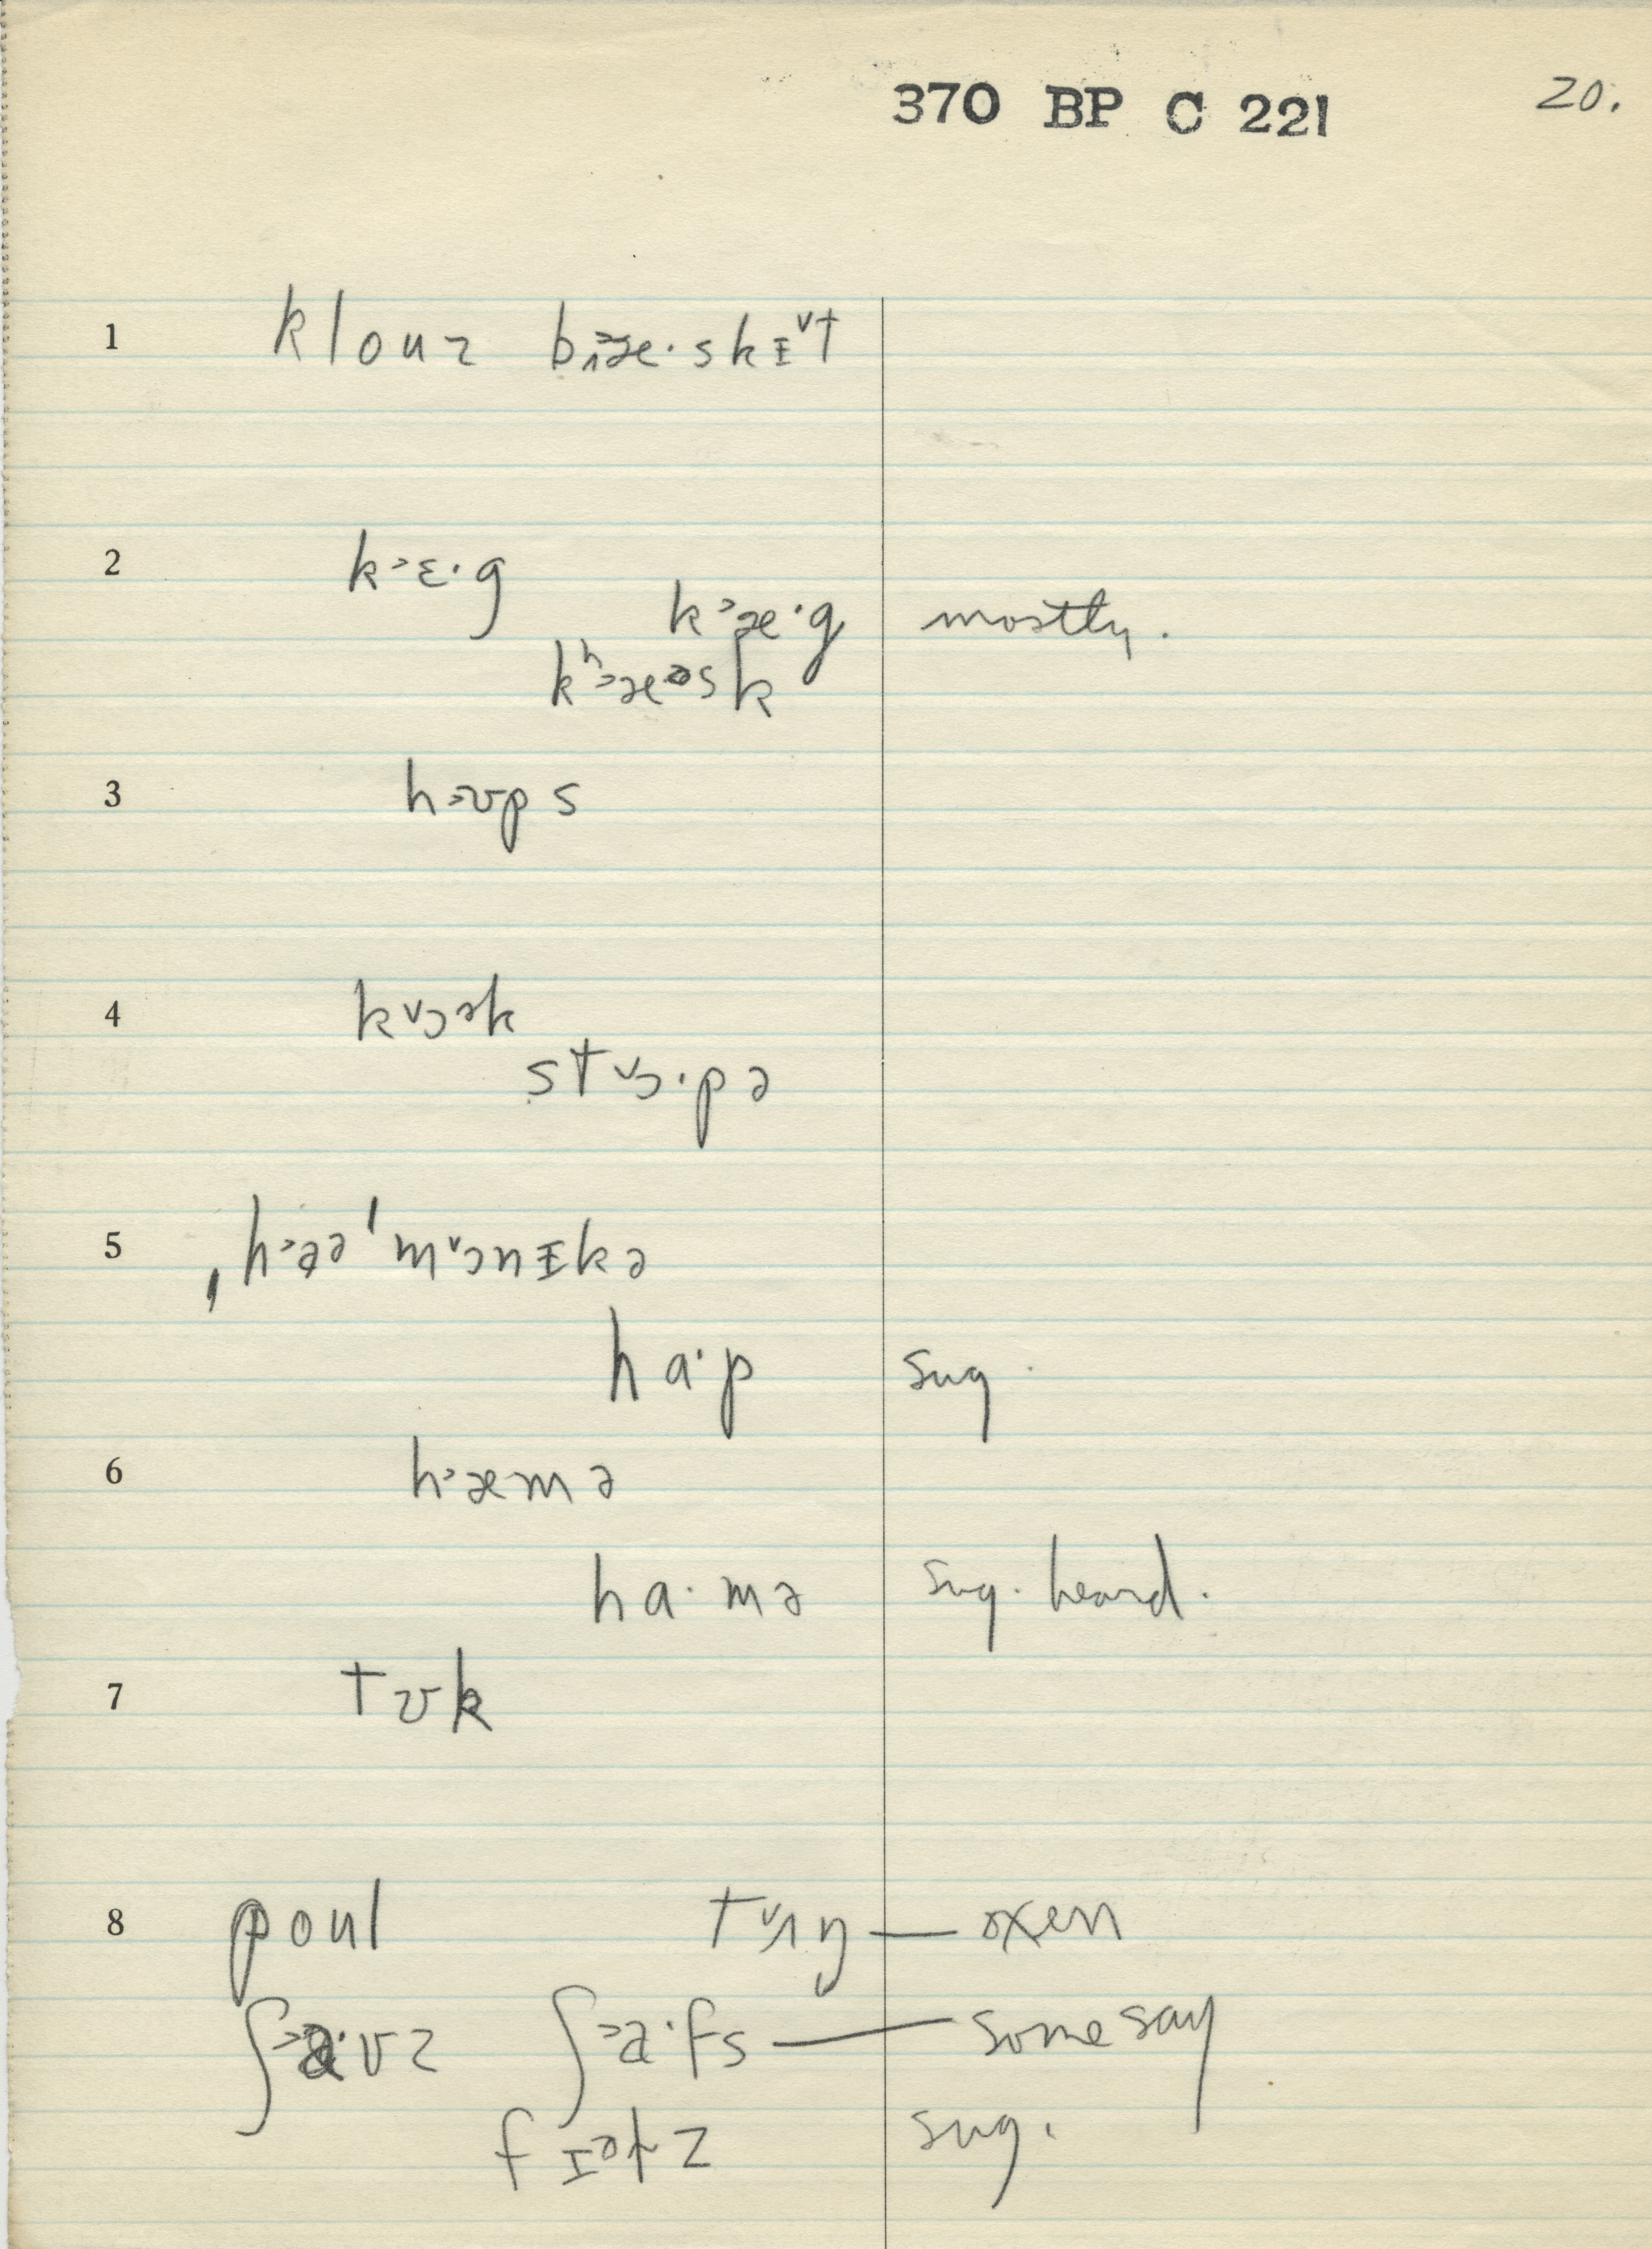 370 BP C 221 20.
1 klouz b˄æ·skɪ˅t
2 k˃ɛ·g
k˃æ·g mostly.
kʰ˃æəsk
3 h˃ʊps
4 k˅ɔək
st˅ɔ·pə
5 ˌh˃aə ˈm˅ɔnɪkə
ha·p sug.
6 h˃æmə
ha·mə sug. heard.
7 tʊk
8 poul t˅ʌŋ — oxen
ʃ˃a·vz ʃ˃a·fs — some say
sug.